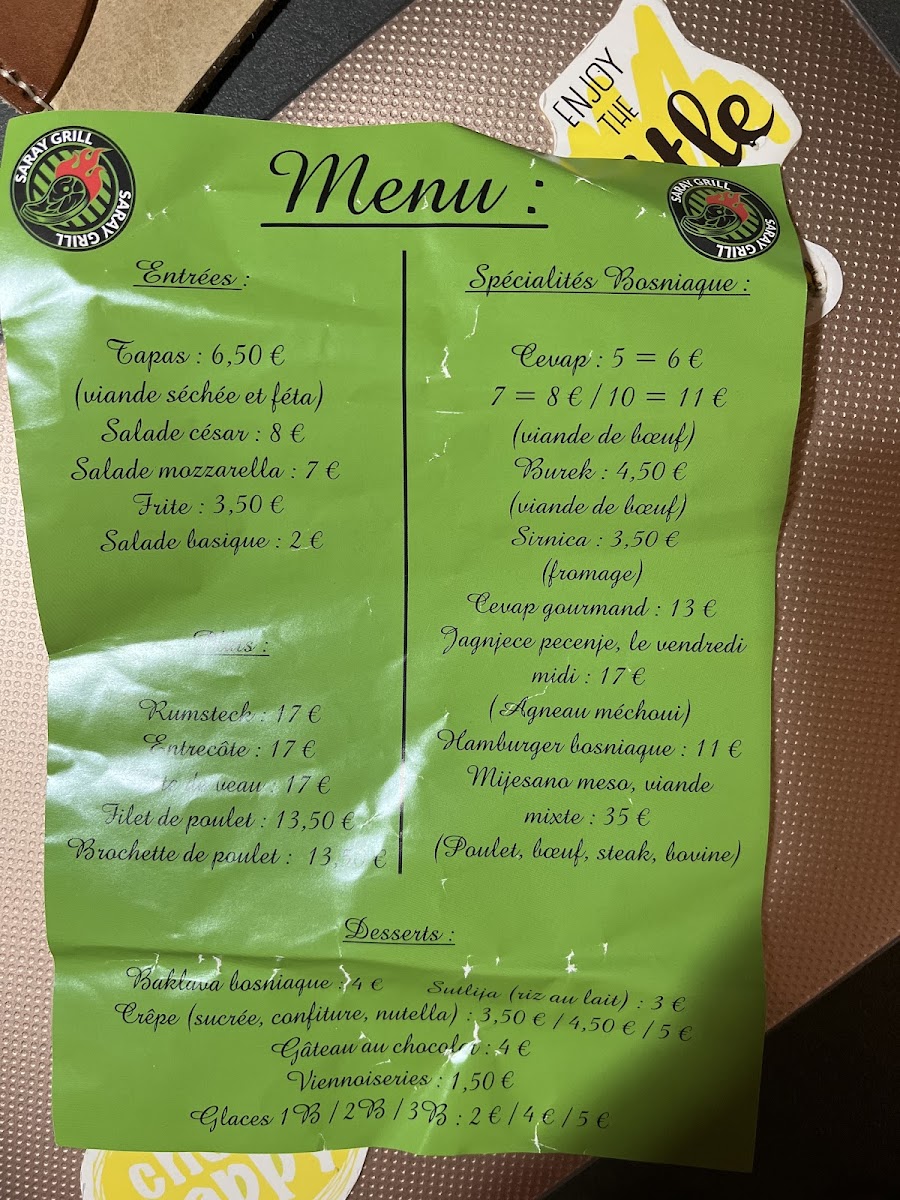 SARAY GRILL
SARAY GRILL
Menu :
ENJOY
THE
SARAY GRILL
SARAY GRILL
Entrées :
Tapas : 6,50 €
(viande séchée et féta)
Salade césar : 8 €
Salade mozzarella : 7 €
Frite : 3,50 €
Salade basique : 2 €
Rumsteck : 17 €
Entrecôte : 17 €
veau : 17 €
Filet de poulet : 13,50 €
Brochette de poulet : €
Spécialités Bosniaque :
Cevap : 5 = 6 €
7 = 8 € / 10 = 11 €
(viande de bœuf)
Burek : 4,50 €
(viande de bœuf)
Sirnica : 3,50 €
(fromage)
Cevap gourmand : 13 €
Jagnjece pecenje, le vendredi
midi : 17 €
(Agneau méchoui)
Hamburger bosniaque : 11 €
Mijesano meso, viande
mixte : 35 €
(Poulet, bœuf, steak, bovine)
Desserts :
Baklava bosniaque : 4 € Sutlija (riz au lait) : 3 €
Crêpe (sucrée, confiture, nutella) : 3,50 € / 4,50 € / 5 €
Gâteau au chocolat : 4 €
Viennoiseries : 1,50 €
Glaces 1B / 2B / 3B : 2 € / 4 € / 5 €